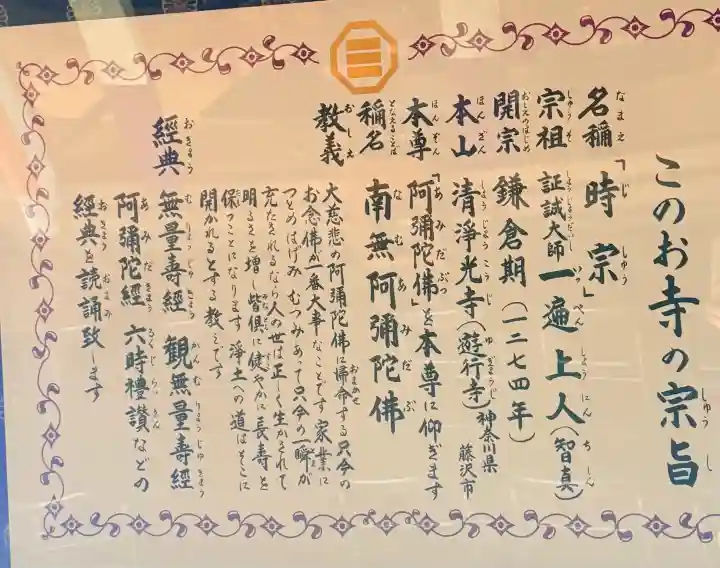 このお寺の宗旨
名稱「時宗」
宗祖 証誠大師 一遍上人（智真）
開宗 鎌倉期（一二七四年）
本山 清淨光寺（遊行寺）神奈川県藤沢市
本尊「阿彌陀佛」を本尊に仰ぎます
稱名 南無阿彌陀佛
教義 大慈悲の阿彌陀佛に帰命する只今の
お念佛が一番大事なことです 家業に
つとめはげみ むつみあって只今の一瞬が
充たされるなら人の世は正しく生かされて
明るさを増し 皆倶に健やかに長寿を
保つことになります 淨土への道はそこに
開かれるとする教えです
經典 無量壽經 觀無量壽經
阿彌陀經 六時禮讃などの
經典を読誦致します